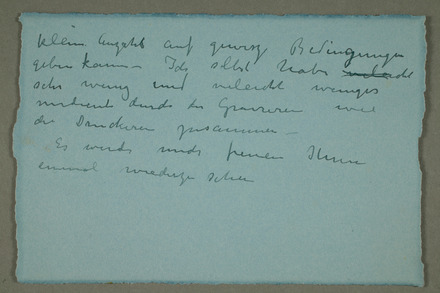 kleine Anzahl auf gewisse Bedingungen
geben kann. Ich selbst habe
sehr wenig und vieleicht weniger
durch das Gravieren wie
die Druckerei zusammen –
Es würde mich freuen Ihnen
einmal wieder zu sehen